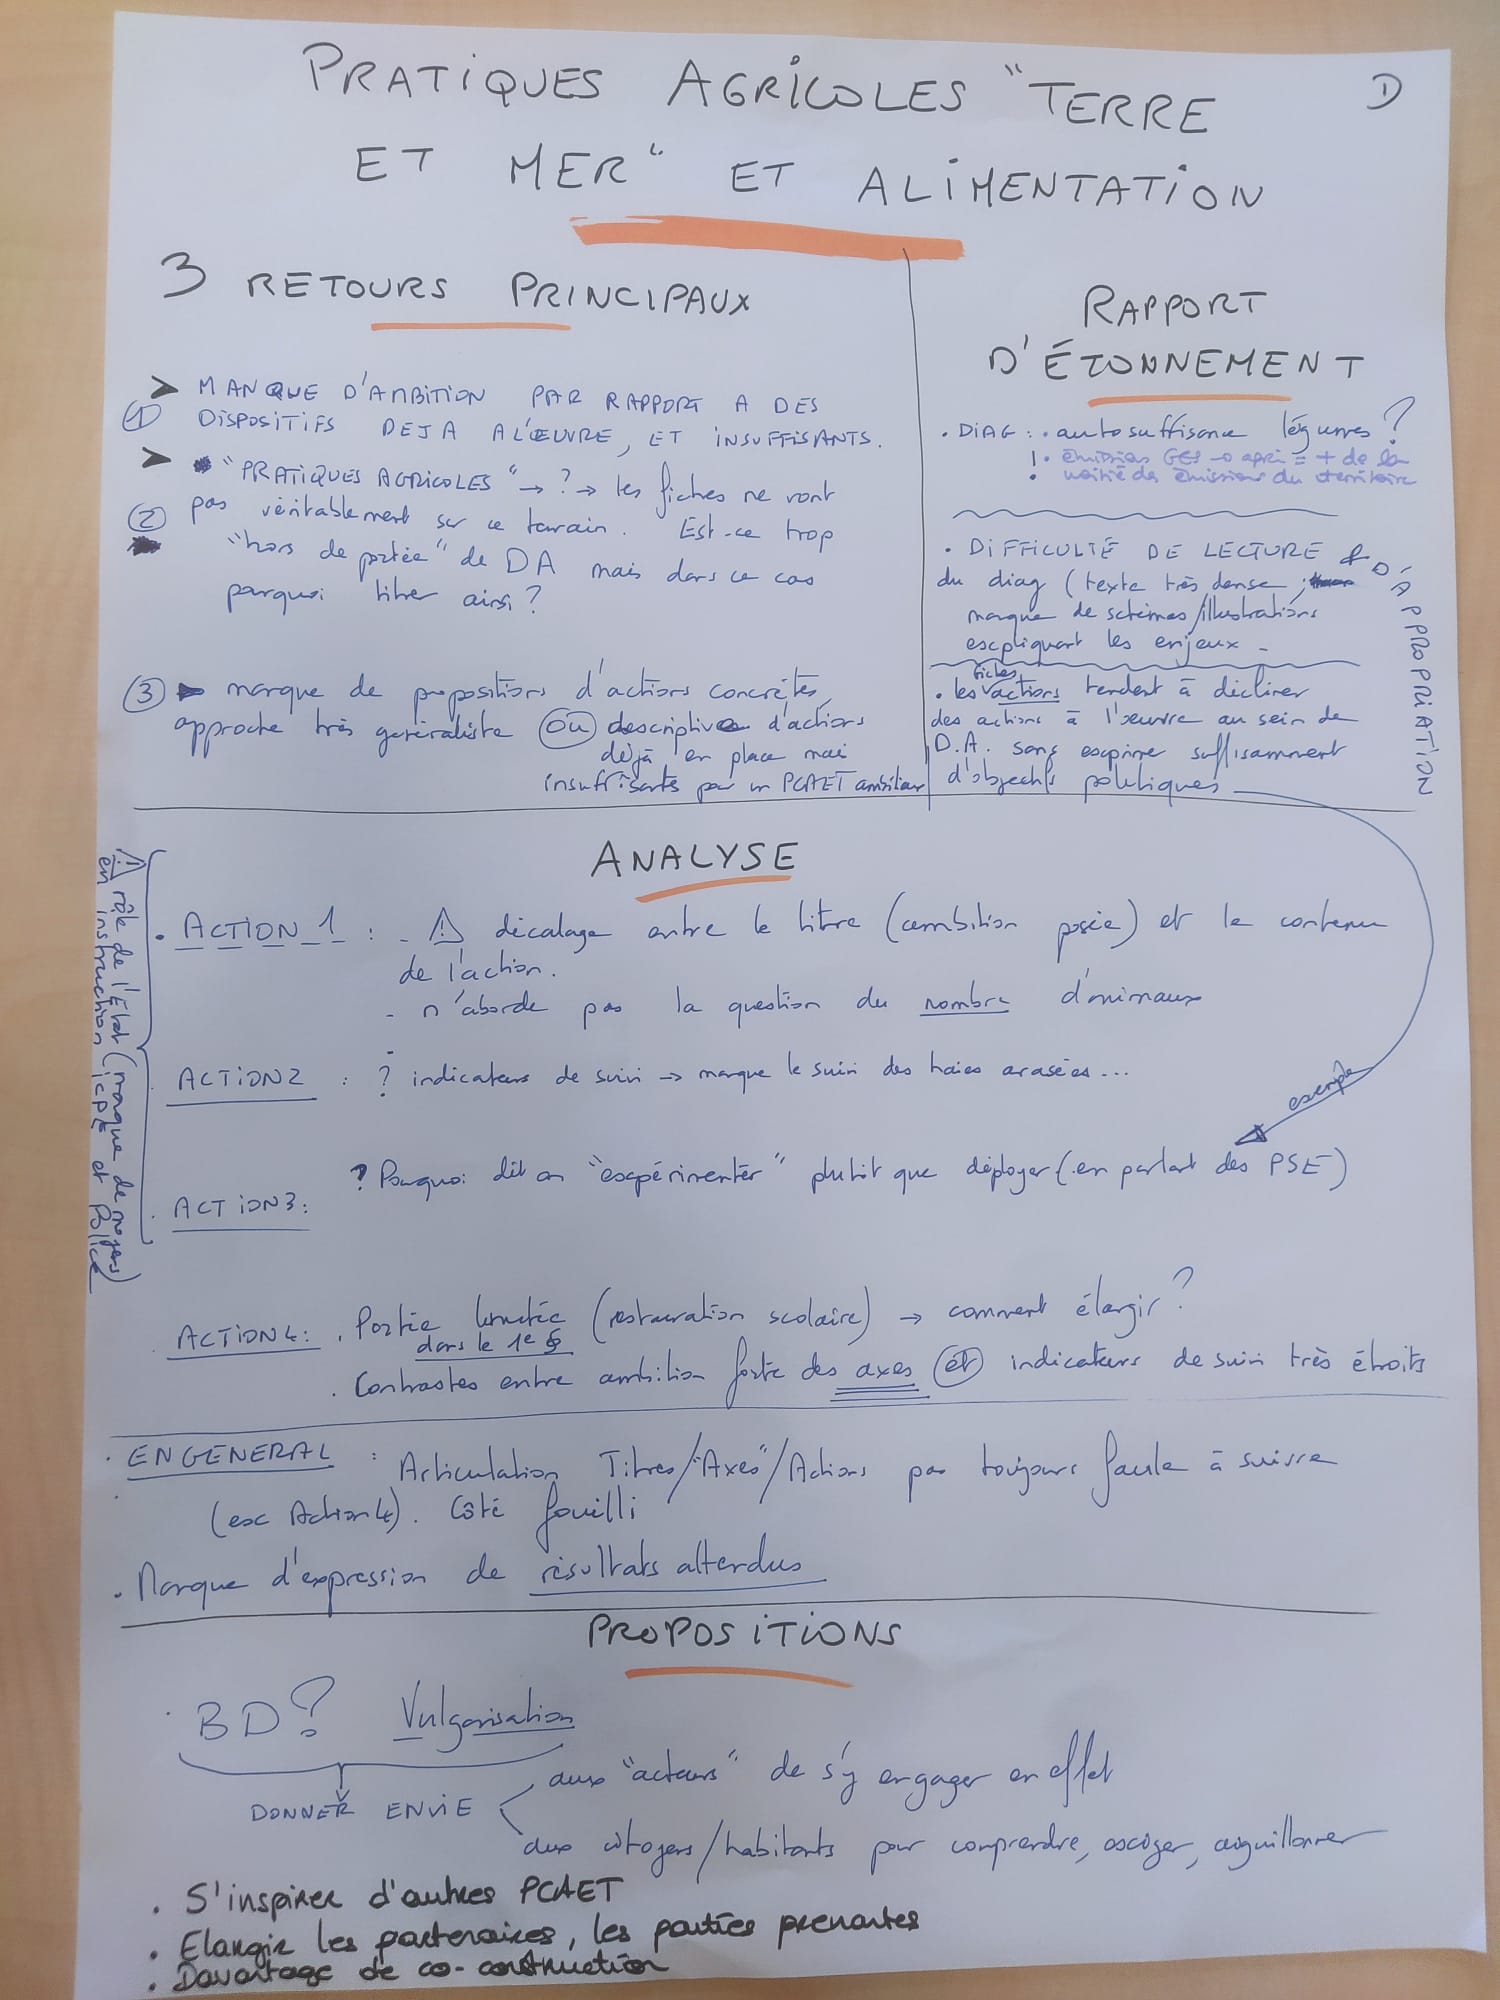 PRATIQUES AGRICOLES "TERRE
ET MER" ET ALIMENTATION
D
3 RETOURS PRINCIPAUX
➤ MANQUE D'AMBITION PAR RAPPORT A DES
① DISPOSITIFS DEJA A L'ŒUVRE, ET INSUFFISANTS.
➤ "PRATIQUES AGRICOLES" → ? → les fiches ne vont
② pas véritablement sur ce terrain. Est-ce trop
"hors de portée" de DA mais dans ce cas
pourquoi titrer ainsi ?
③ manque de propositions d'actions concrètes,
approche très généraliste (OU) descriptive d'actions
déjà en place mais
insuffisants pour un PCAET ambitieux
RAPPORT
D'ÉTONNEMENT
. DIAG : . autosuffisance légumes ?
! . émissions GES → agri = + de la
moitié des émissions du territoire
. DIFFICULTÉ DE LECTURE & D'APPROPRIATION
du diag (texte très dense,
manque de schémas/illustrations
expliquant les enjeux -
fiches
. les actions tendent à décliner
des actions à l'œuvre au sein de
D.A. sans exprimer suffisamment
d'objectifs politiques
exemple
ANALYSE
⚠ rôle de l'État (manque de moyens)
en instruction ICPE et Police
. ACTION 1 : - ⚠ décalage entre le titre (ambition posée) et le contenu
de l'action.
- n'aborde pas la question du nombre d'animaux
. ACTION 2 : ? indicateurs de suivi → manque le suivi des haies arasées...
. ACTION 3 : ? Pourquoi dit on "expérimenter" plutôt que déployer (en parlant des PSE)
. ACTION 4 : . Portée limitée (restauration scolaire) → comment élargir ?
dans le 1e §
. Contrastes entre ambition forte des axes (et) indicateurs de suivi très étroits
. EN GENERAL : Articulation Titres/"Axes"/Actions pas toujours facile à suivre
(ex Action 4). Côté fouilli
. Manque d'expression de résultats attendus
PROPOSITIONS
. BD ? Vulgarisation
DONNER ENVIE
aux "acteurs" de s'y engager en effet
aux citoyens/habitants pour comprendre, exiger, aiguillonner
. S'inspirer d'autres PCAET
. Elargir les partenaires, les parties prenantes
. Davantage de co-construction